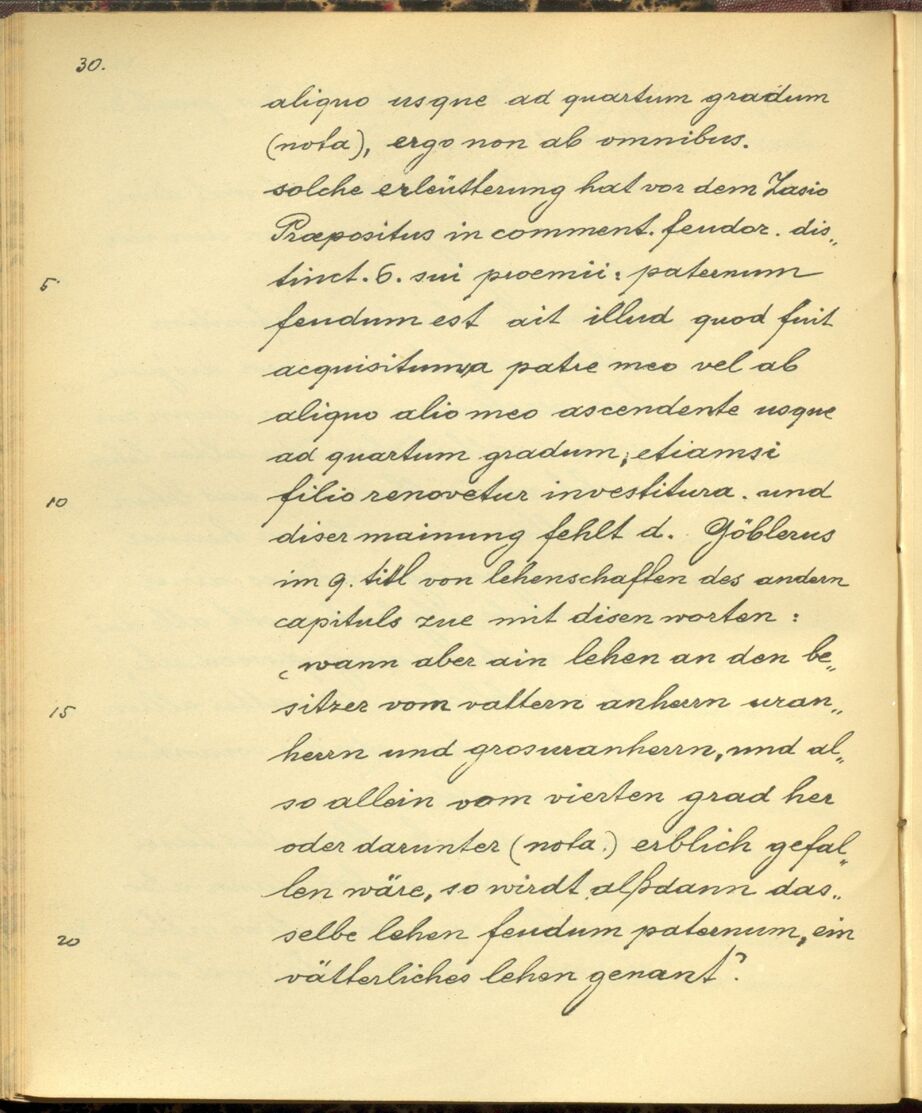 30.
aliquo usque ad quartum gradum
(nota), ergo non ab omnibus.
solche erleütterung hat vor dem Zasio
Præpositus in comment. feudor. dis„
5 tinct. 6. sui proemii: paternum
feudum est ait illud quod fuit
acquisitum a patre meo vel ab
aliquo alio meo ascendente usque
ad quartum gradum, etiamsi
10 filio renovetur investitura. und
diser mainung fehlt d. Göblerus
im 9. titl von lehenschaften des andern
capituls zue mit disen worten:
‚wann aber ain lehen an den be„
15 sitzer vom vattern anherrn uran„
herrn und grosuranherrn, und al„
so allein vom vierten grad her
oder darunter (nota.) erblich gefal„
len wäre, so wirdt alßdann das„
20 selbe lehen feudum paternum, ein
vätterliches lehen genant?